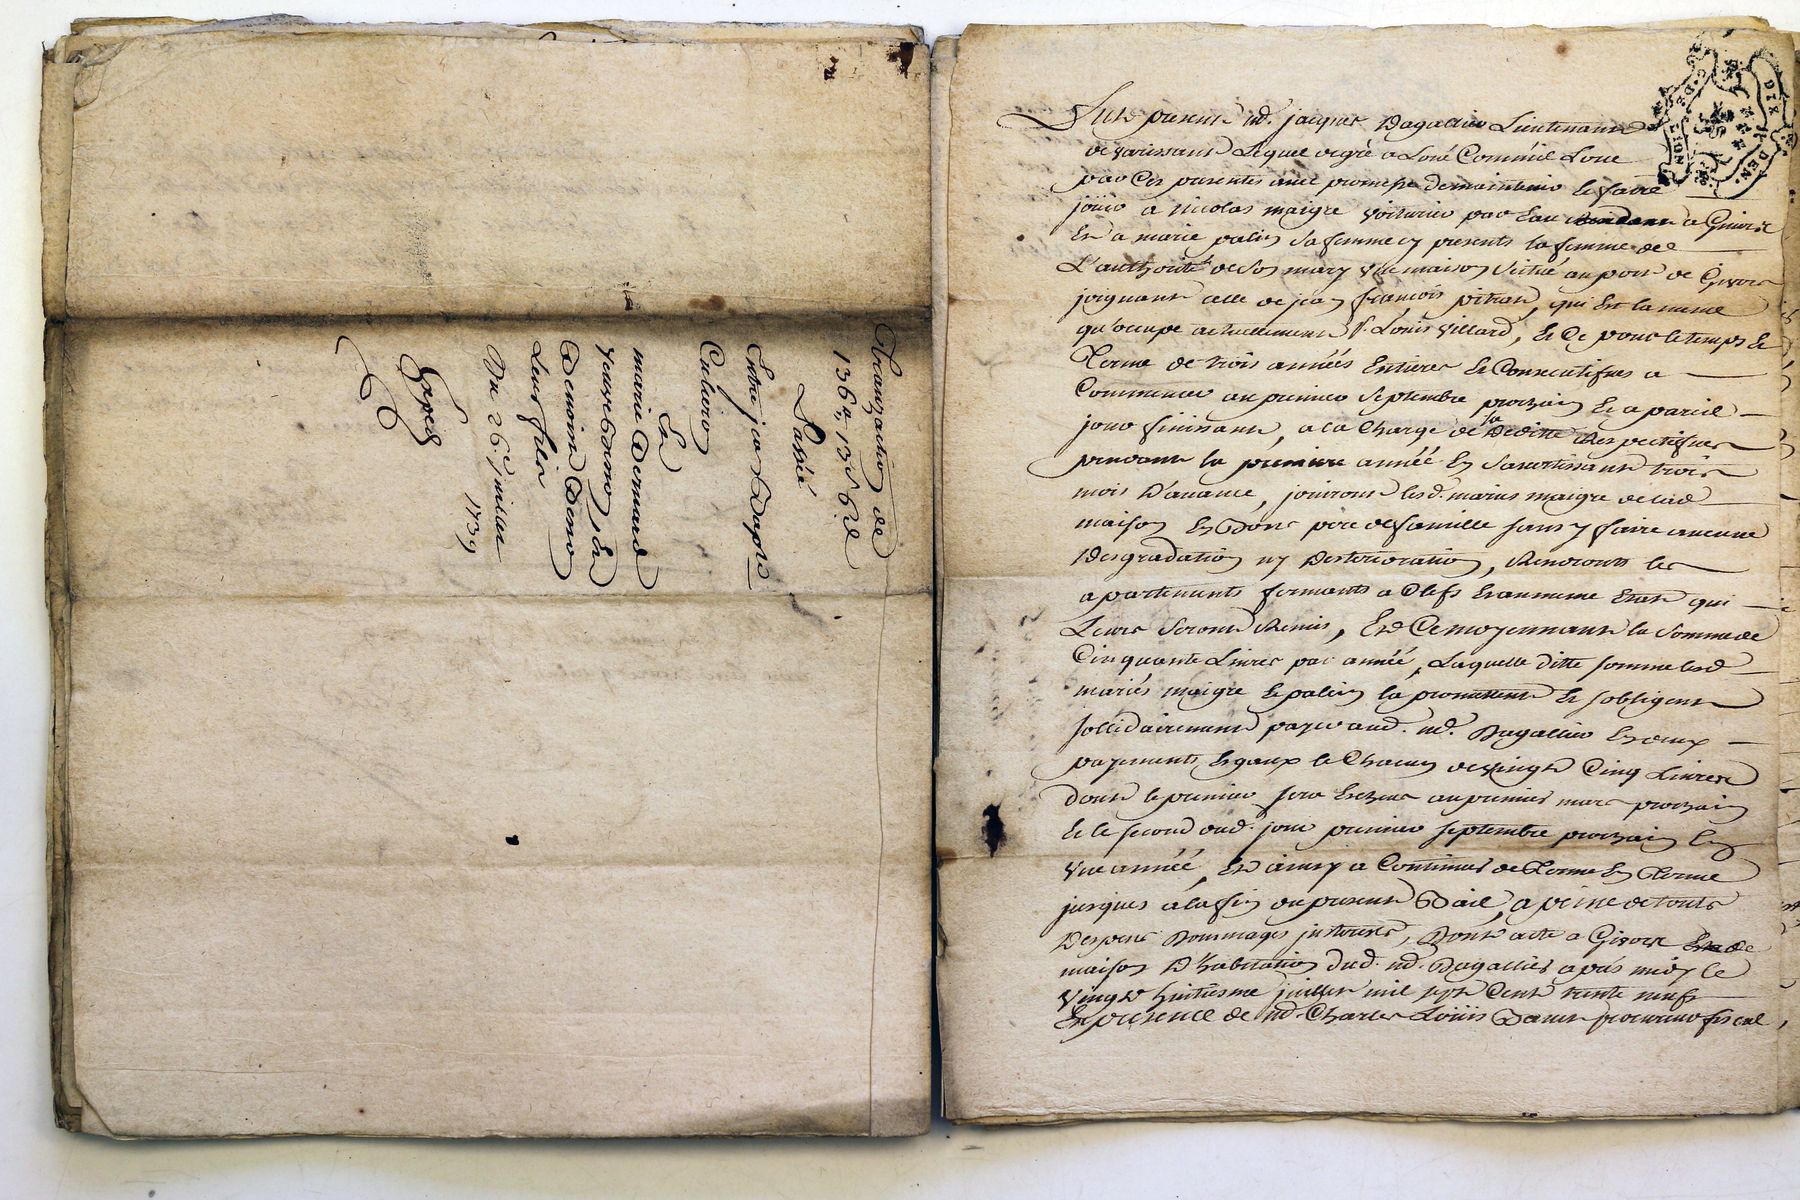 Tranzaction de
136ˡᵗ 13ˢ 6ᵈ
Passé
Entre jean
Et
marie Bernard
veuve
Leurs fils
Du 26ᵉ juillet
1739
Exped
present Md. jacques Dagallier Lieutenant
Lequel de gré a Loué Comme il Loue
par Ces presentes avec promesse de maintenir et faire
joüir a nicolas maigre voiturier par Eau a Givors
Et a marie palin sa femme cy presents la femme de
L'authorité de son mary une maison scitué au port de Givors
joignant celle de jean françois pitrat, qui Est la meme
qu'occupe actuellement Sr. Loüis villard, Et Ce pour le temps Et
Terme de trois années Entieres Et Consecutifves a
Commencer au premier septembre prochain Et a pareil
jour finissant, a la Charge de la Deditte Respectifve
pendant la premiere année En s'avertissant trois
mois D'avance, joüiront lesd. mariés maigre de lad.
maison En Bons pere de famille sans y faire aucune
Desgradation ny Desterioration, Rendront les
apartements fermants a Clefs Et au meme Etat qui
Leurs seront Remis, Et Ce moyennant la somme de
Cinquante Livres par année, Laquelle ditte somme lesd.
mariés maigre Et palin la promettent Et s'obligent
sollidairement payer aud. Md. Dagallier En deux
payements Egaux de Chacun de vingt Cinq Livres
dont le premier sera Echeu au premier mars prochain
Et le second aud. jour premier septembre prochain En
une année, Et ainsy a Continuer de Terme En Terme
jusques a la fin du present Bail, a peine de touts
Despens Dommages jnterests, Dont acte a Givors
maison D'habitation dud. Md. Dagallier apres midy le
vingt huitiesme juillet mil sept Cent trente neuf
En presence de Md. Charles Loüis procureur fiscal,
DIX
DEN.
DE
LION